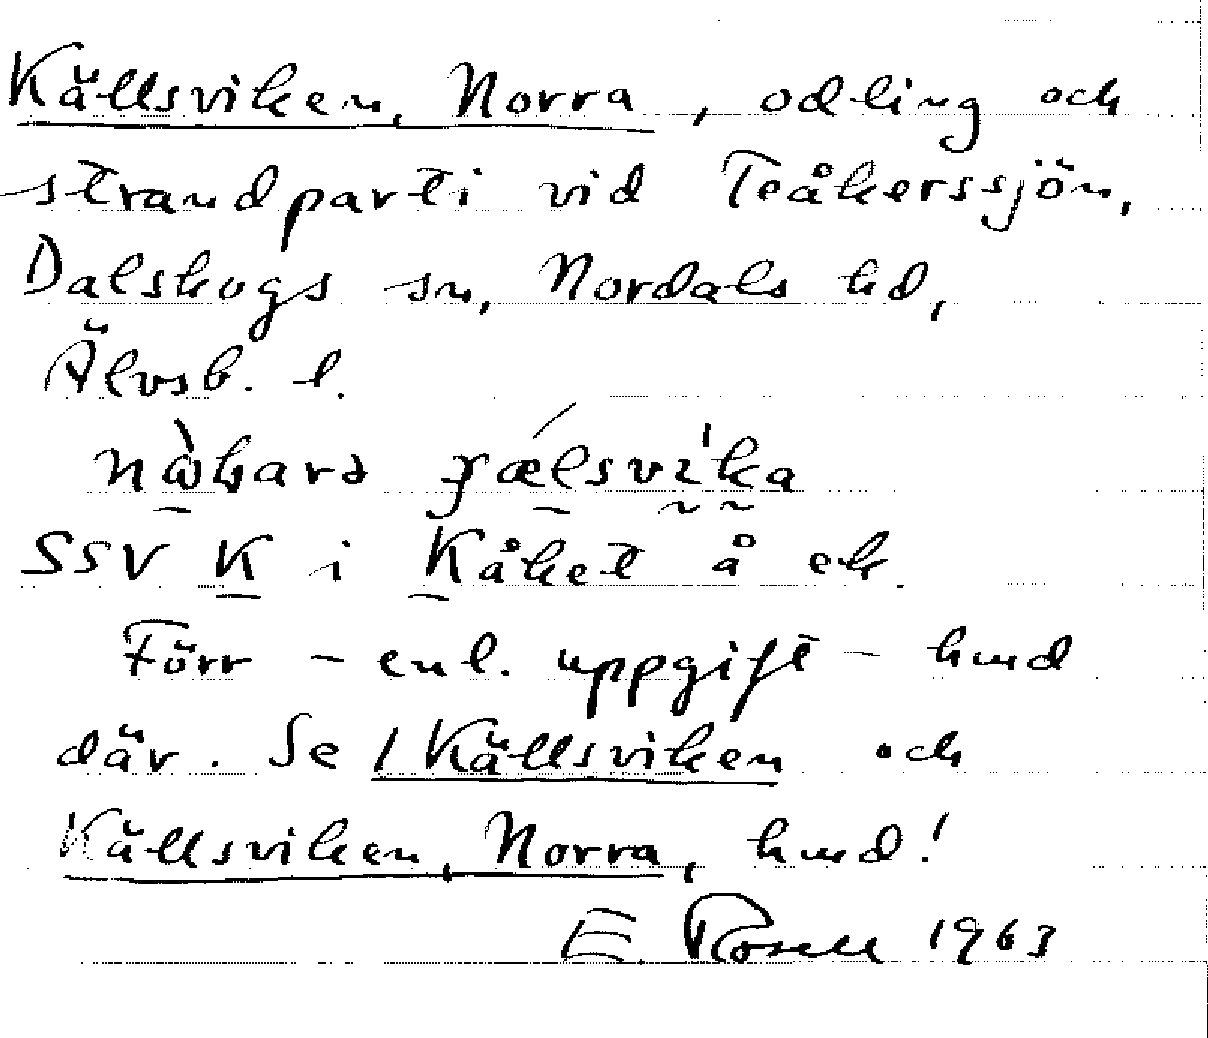 Källsviken, Norra, odling och
strandparti vid Teåkerssjön,
Dalskogs sn, Nordals hd,
Älvsb. l.
SSV K i Kåket å ek.
Förr – enl. uppgift – hmd
där. Se 1 Källsviken och
Källsviken, Norra, hmd!
E. Rosell 1963